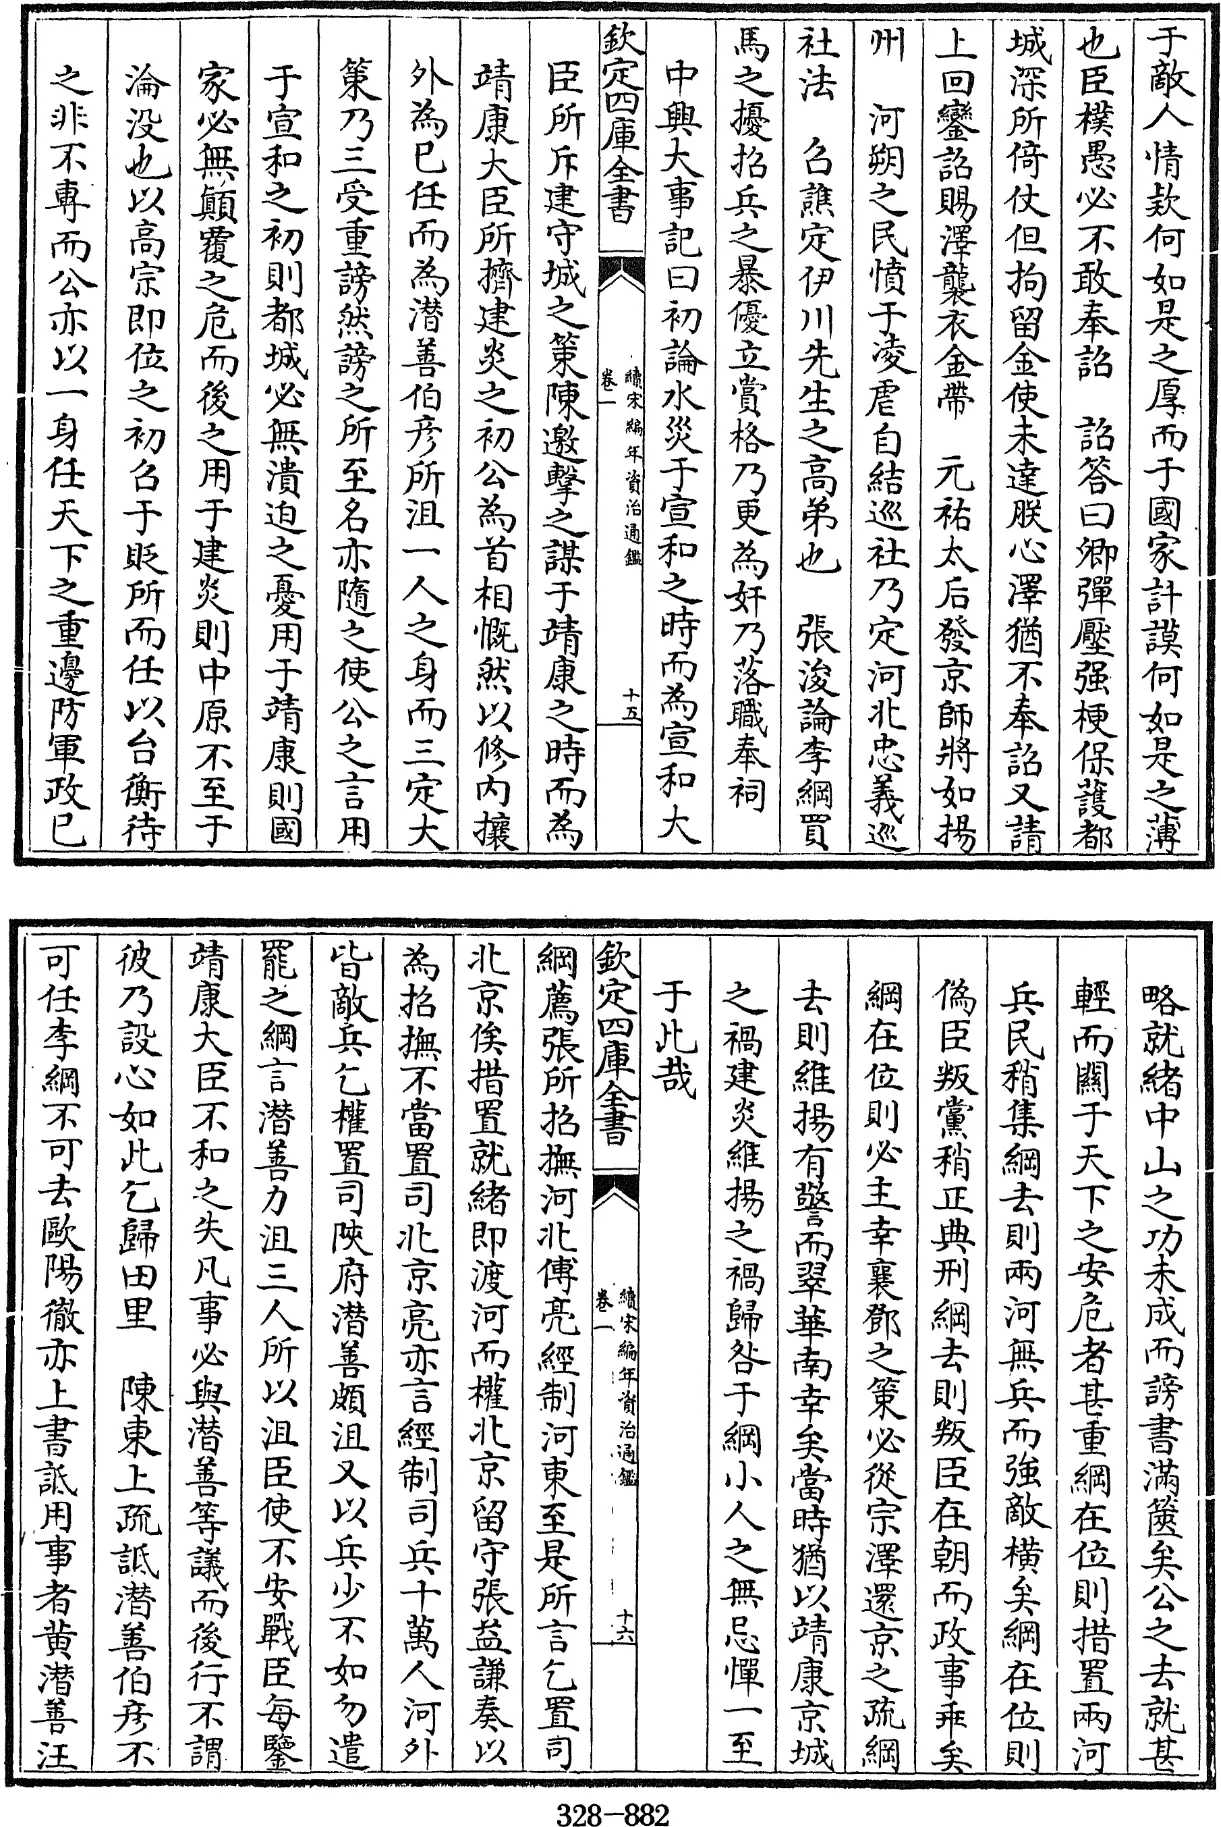 于敵人情欵何如是之厚而于國家計謨何如是之薄
也臣樸愚必不敢奉詔　詔答曰卿彈壓强梗保䕶都
城深所倚仗但拘留金使未達朕心澤猶不奉詔又請
上回鑾詔賜澤襲衣金帶　元祐太后發京師將如揚
州　河朔之民憤于凌虐自結巡社乃定河北忠義巡
社法　召譙定伊川先生之高弟也　張浚論李綱買
馬之擾招兵之暴優立賞格乃更為奸乃落職奉祠
中興大事記曰初論水災于宣和之時而為宣和大
欽定四庫全書
續宋編年資治通鑑
卷一
十五
臣所斥建守城之策陳邀擊之謀于靖康之時而為
靖康大臣所擠建炎之初公為首相慨然以修内攘
外為已任而為潜善伯彦所沮一人之身而三定大
策乃三受重謗然謗之所至名亦隨之使公之言用
于宣和之初則都城必無潰迫之憂用于靖康則國
家必無顛覆之危而後之用于建炎則中原不至于
淪没也以高宗即位之初召于貶所而任以台衡待
之非不專而公亦以一身任天下之重邊防軍政已
略就緒中山之功未成而謗書滿篋矣公之去就甚
輕而關于天下之安危者甚重綱在位則措置兩河
兵民稍集綱去則兩河無兵而強敵橫矣綱在位則
偽臣叛黨稍正典刑綱去則叛臣在朝而政事乖矣
綱在位則必主幸襄鄧之策必從宗澤還京之疏綱
去則維揚有警而翠華南幸矣當時猶以靖康京城
之禍建炎維揚之禍歸咎于綱小人之無忌憚一至
于此哉
欽定四庫全書
續宋編年資治通鑑
卷一
十六
綱薦張所招撫河北傅亮經制河東至是所言乞置司
北京俟措置就緒即渡河而權北京留守張益謙奏以
為招撫不當置司北京亮亦言經制司兵十萬人河外
皆敵兵乞權置司陜府潜善頗沮又以兵少不如勿遣
罷之綱言潜善力沮三人所以沮臣使不安職臣每鑒
靖康大臣不和之失凡事必與潜善等議而後行不謂
彼乃設心如此乞歸田里　陳東上疏詆潜善伯彦不
可任李綱不可去歐陽徹亦上書詆用事者黄潜善汪
328-882